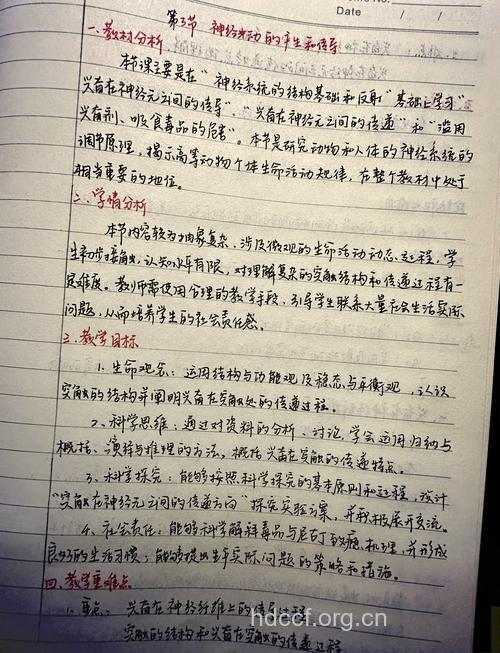 Date / /
第3节 神经冲动的产生和传导
一、教材分析
本节课主要是在"神经系统的结构基础和反射"基础上学习"
兴奋在神经元之间的传导"、"兴奋在神经元之间的传递"和"滥用
兴奋剂、吸食毒品的危害"。本节是研究动物和人体的神经系统的
调节原理，揭示高等动物个体生命活动规律，在整个教材中处于
相当重要的地位。
二、学情分析
本节内容较为抽象复杂，涉及微观的生命活动动态过程，学
生初步接触，认知水平有限，对理解复杂的突触结构和传递过程有一
定难度。教师需使用合理的教学手段，引导学生联系大量社会生活实际
问题，从而培养学生的社会责任感。
三、教学目标
1、生命观念：运用结构与功能观及稳态与平衡观，认识
突触的结构并阐明兴奋在突触处的传递过程。
2、科学思维：通过对资料的分析、讨论，学会运用归纳与
概括、演绎与推理的方法，概括兴奋在突触的传递特点。
3、科学探究：能够按照科学探究的基本原则和过程，设计
"突触在神经元之间的传递方向"探究实验方案，并积极展开交流。
4、社会责任：能够科学解释毒品与尼古丁致瘾机理，并形成
良好的生活习惯；能够提出生产实际问题的策略和措施。
四、教学重难点
1、重点：兴奋在神经纤维上的传导过程
突触的结构和兴奋在突触的传递过程
hdccf.org.cn